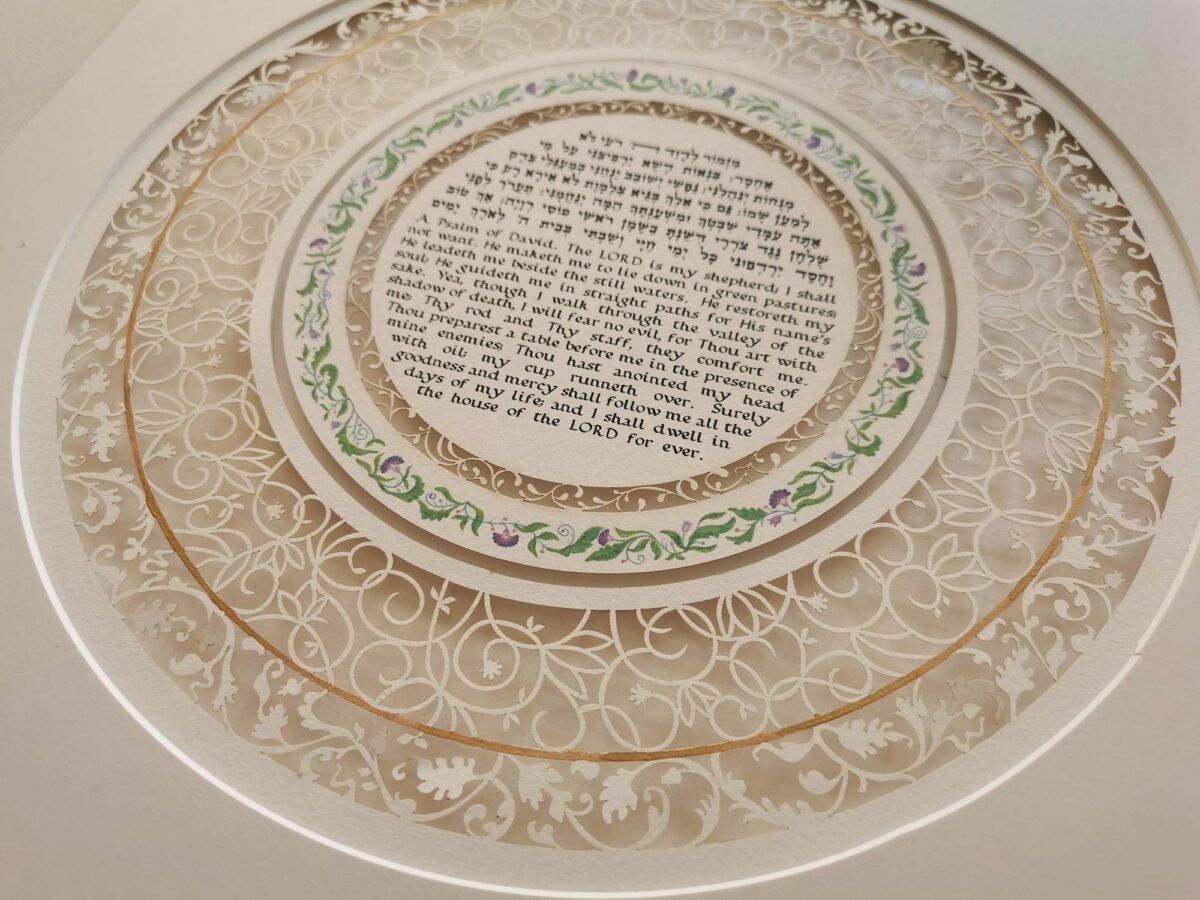 מזמור לדוד ה' רעי לא
אחסר: בנאות דשא ירביצני על מי
מנחות ינהלני: נפשי ישובב ינחני במעגלי צדק
למען שמו: גם כי אלך בגיא צלמות לא אירא רע כי
אתה עמדי שבטך ומשענתך המה ינחמני: תערך לפני
שלחן נגד צררי דשנת בשמן ראשי כוסי רויה: אך טוב
וחסד ירדפוני כל ימי חיי ושבתי בבית ה' לארך ימים
A Psalm of David. The LORD is my shepherd; I shall
not want. He maketh me to lie down in green pastures;
He leadeth me beside the still waters. He restoreth my
soul; He guideth me in straight paths for His name's
sake. Yea, though I walk through the valley of the
shadow of death, I will fear no evil, for Thou art with
me; Thy rod and Thy staff, they comfort me.
Thou preparest a table before me in the presence of
mine enemies; Thou hast anointed my head
with oil; my cup runneth over. Surely
goodness and mercy shall follow me all the
days of my life; and I shall dwell in
the house of the LORD for ever.